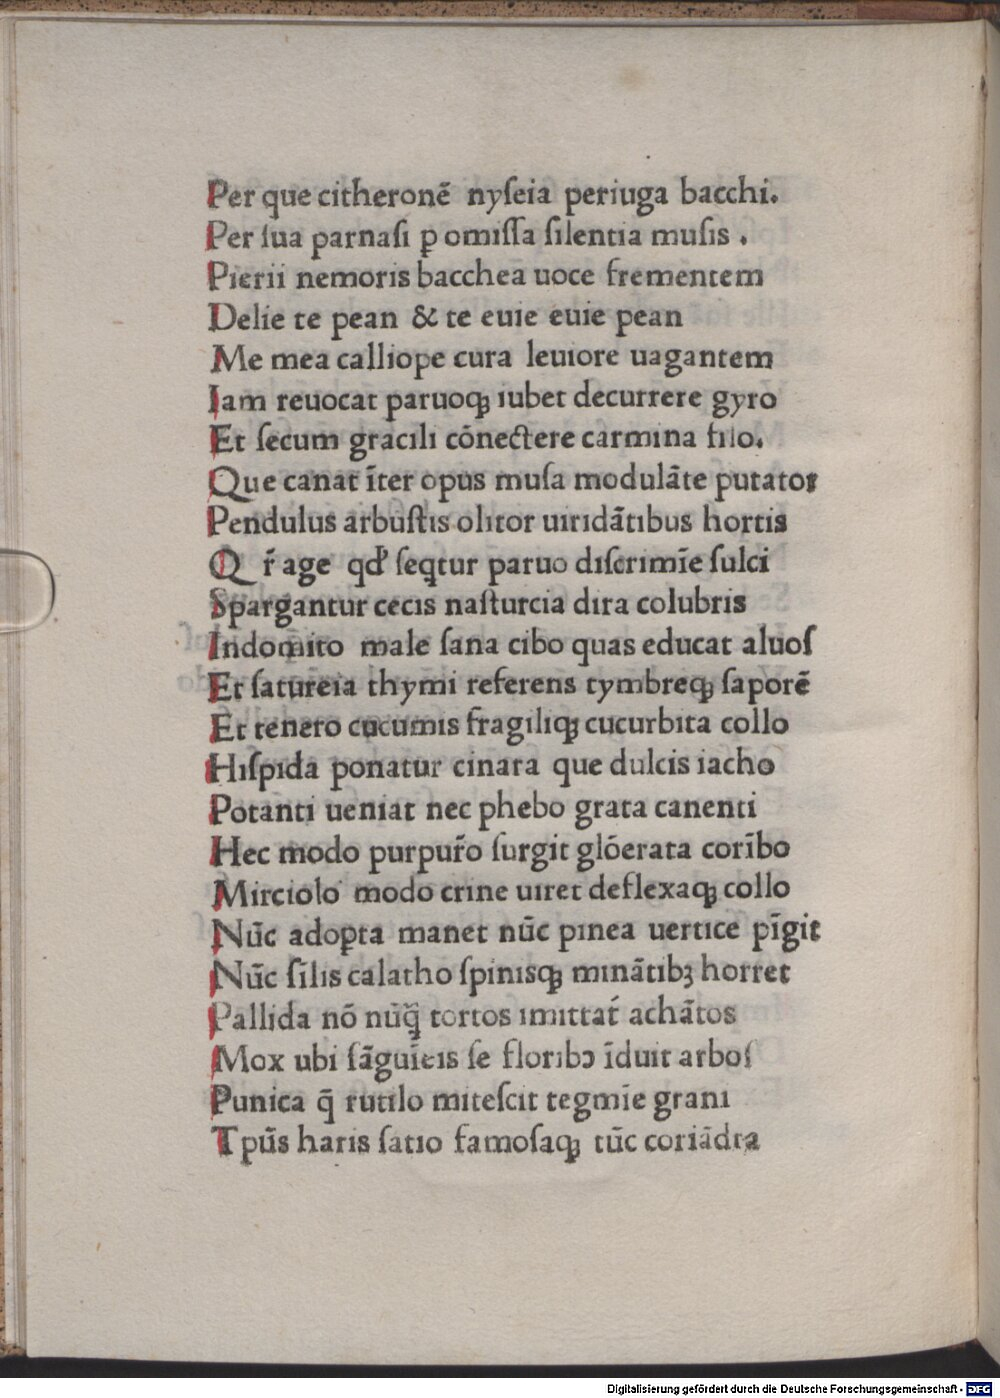 Per que citheronē nyſeia periuga bacchi.
Per ſua parnaſi ꝑ omiſſa ſilentia muſis .
Pierii nemoris bacchea uoce frementem
Delie te pean & te euie euie pean
Me mea calliope cura leuiore uagantem
Iam reuocat paruoqꝫ iubet decurrere gyro
Et ſecum gracili cōnectere carmina filo.
Que canat īter opus muſa modulāte putator
Pendulus arbuſtis olitor uiridātibus hortis
Q r̄ age qd' ſeqtur paruo diſcrimīe ſulci
Spargantur cecis naſturcia dira colubris
Indomito male ſana cibo quas educat aluoſ
Et ſatureia thymi referens tymbreqꝫ ſaporē
Et tenero cucumis fragiliqꝫ cucurbita collo
Hiſpida ponatur cinara que dulcis iacho
Potanti ueniat nec phebo grata canenti
Hec modo purpur̄o ſurgit glōerata corībo
Mirciolo modo crine uiret deflexaqꝫ collo
Nūc adoꝑta manet nūc pinea uertice pīgit
Nūc ſīlis calatho ſpinisqꝫ minātibꝫ horret
Pallida nō nūq̄ tortos imittat̄ achātos
Mox ubi ſāguīeis ſe floribɔ īduit arboſ
Punica q̄ rutilo miteſcit tegmīe grani
Tpūs haris ſatio famoſaqꝫ tūc coriādra
Digitalisierung gefördert durch die Deutsche Forschungsgemeinschaft - DFG